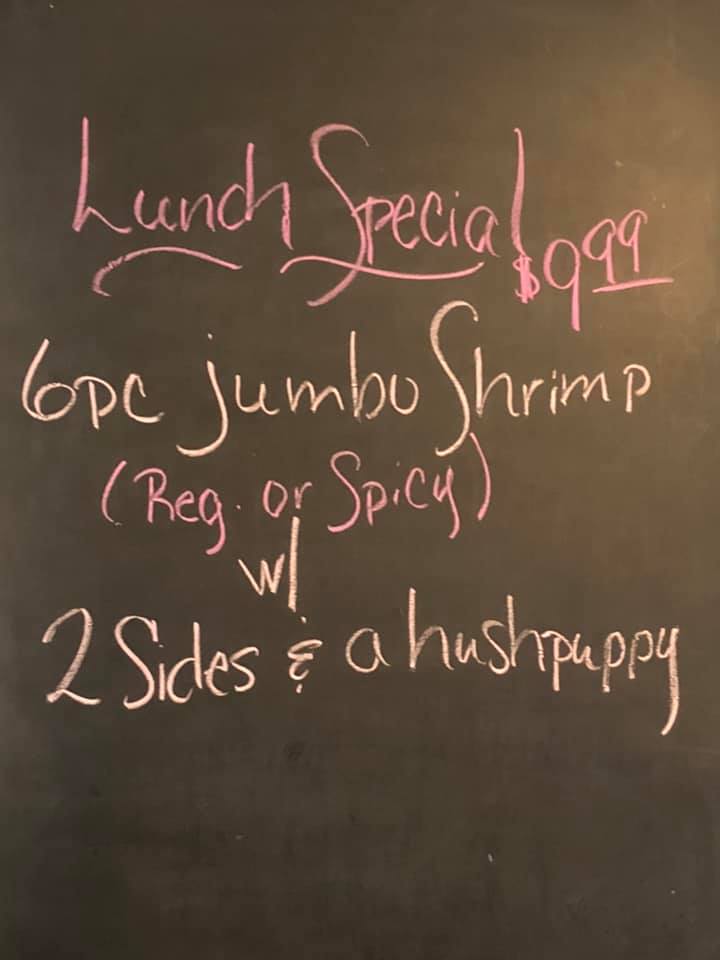 Lunch Special $9.99
6pc jumbo Shrimp
(Reg. or Spicy)
w/
2 Sides & a hushpuppy